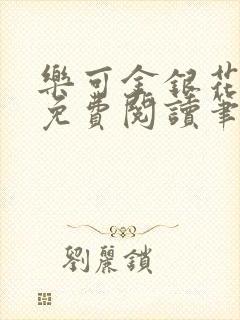 樂可金銀花
免費閱讀筆
劉麗鎖